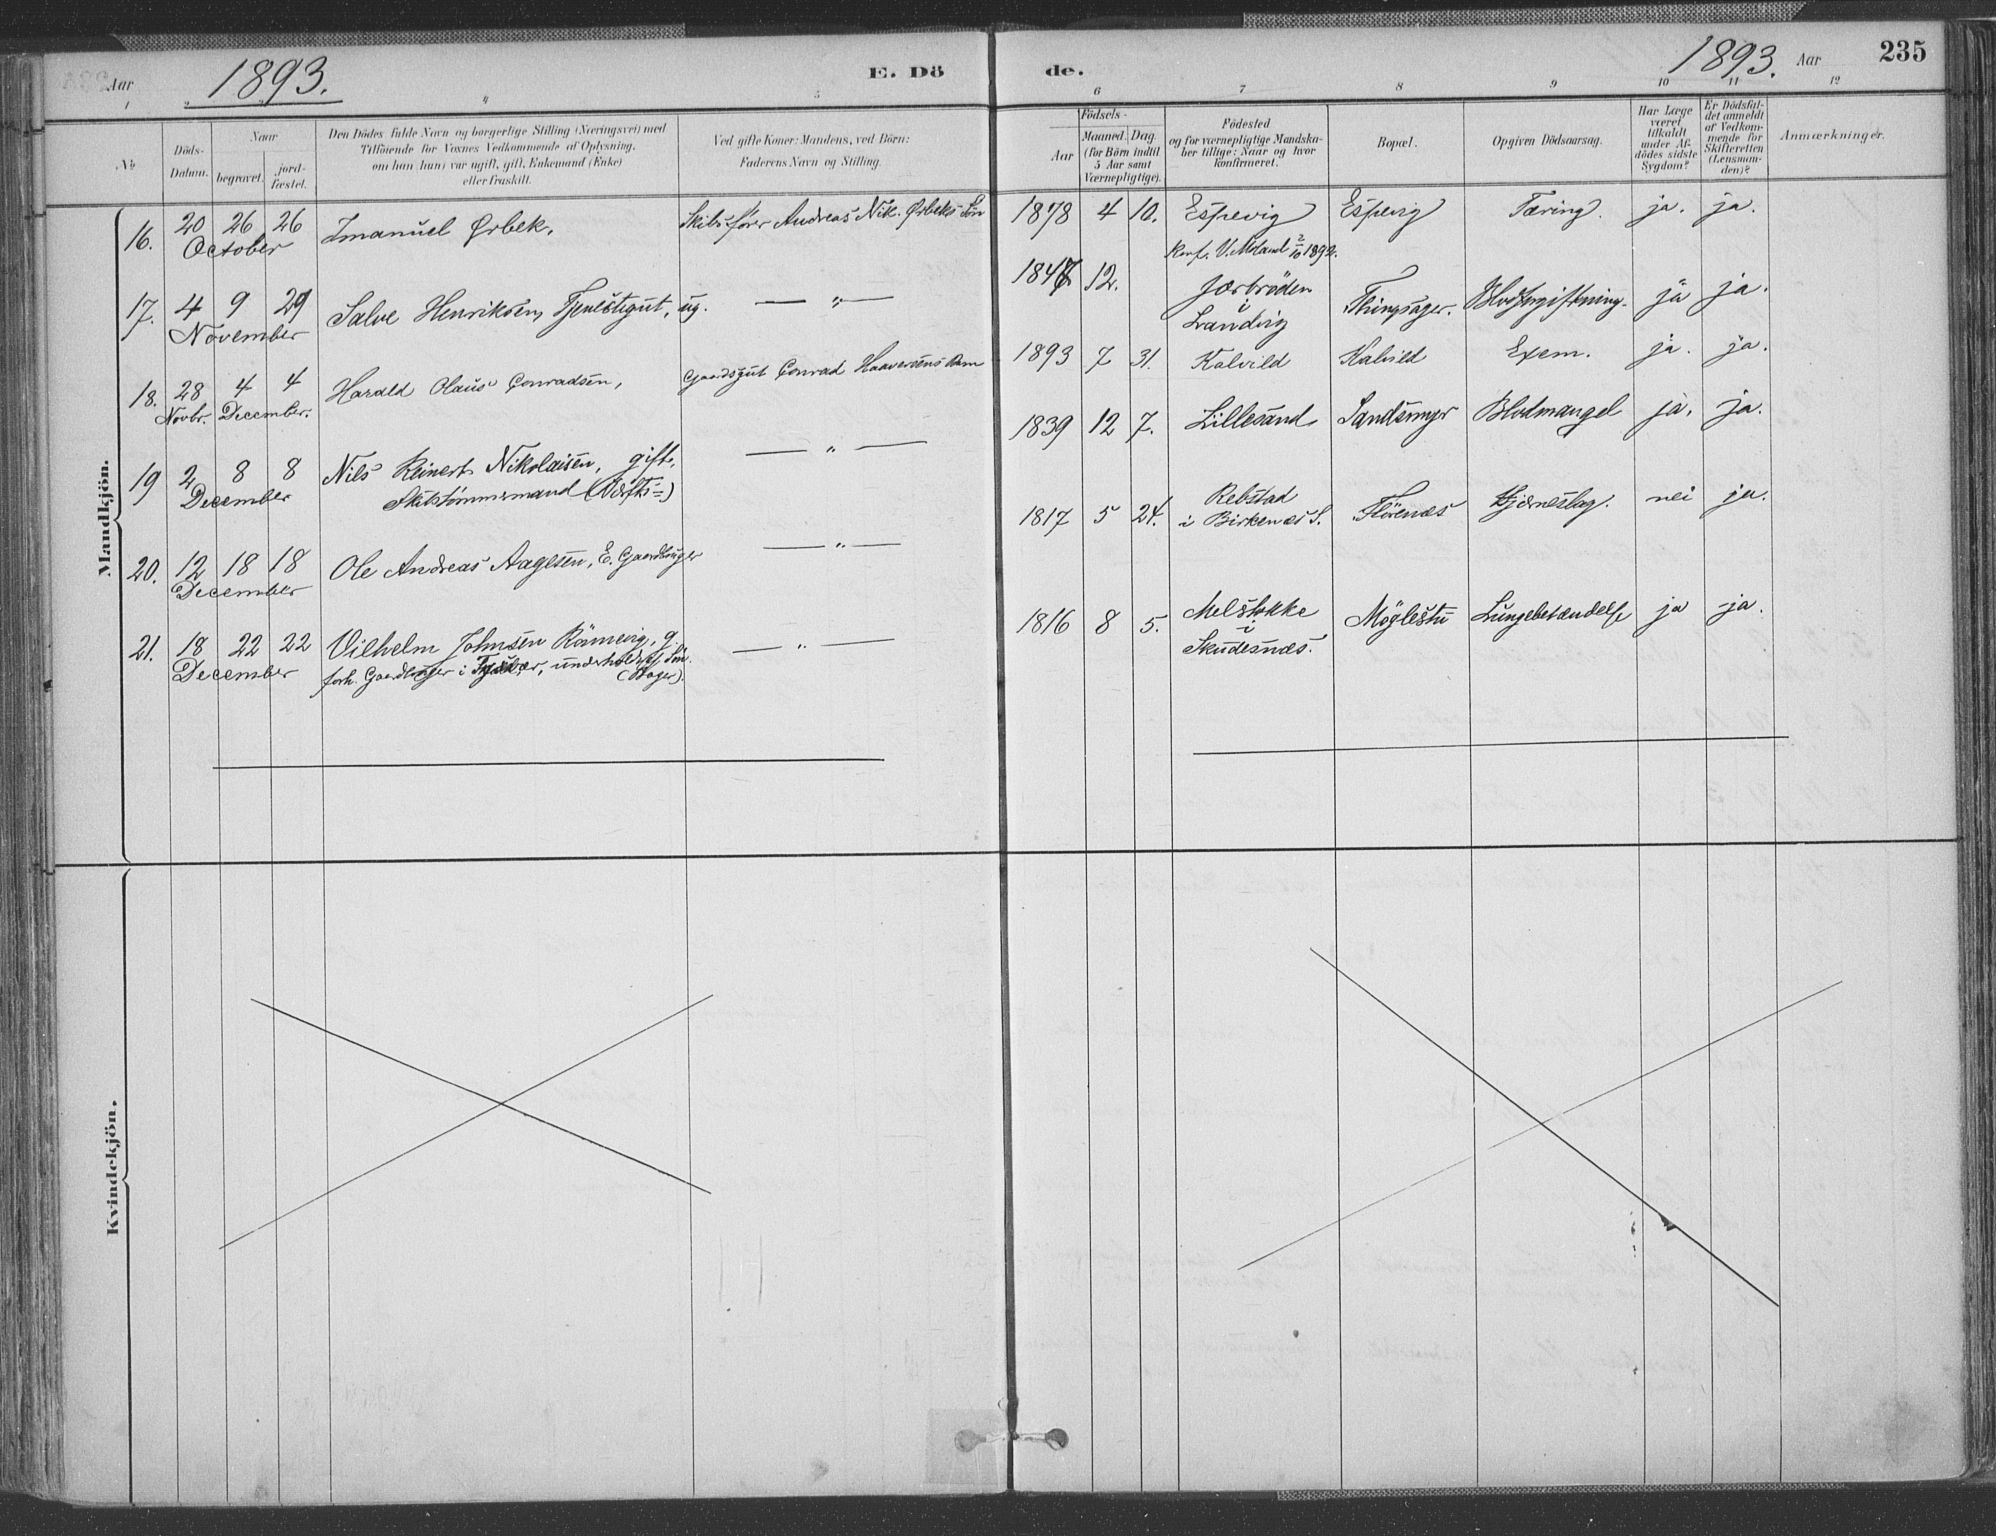 Aar 1893. E. Dö de. 1893. Aar 235
1 2 3 4 5 6 7 8 9 10 11 12
No
Döds-Datum.
Naar
begravet.
jord-fæstet.
Den Dödes fulde Navn og borgerlige Stilling (Næringsvei) med
Tilföiende for Voxnes Vedkommende af Oplysning,
om han (hun) var ugift, gift, Enkemand (Enke)
eller fraskilt.
Ved gifte Koner: Mandens, ved Börn:
Faderens Navn og Stilling.
Födsels-
Aar
Maaned. Dag.
(for Börn indtil
5 Aar samt
Værnepligtige).
Födested
og for værnepligtige Mandska-
ber tillige: Naar og hvor
konfirmeret.
Bopæl.
Opgiven Dödsaarsag.
Har Læge
været
tilkaldt
under Af-
dödes sidste
Sygdom?
Er Dödsfal-
det anmeldt
af Vedkom-
mende for
Skifteretten
(Lensman-
den)?
Anmærkninger.
Mandkjön.
16. 20 26 26 Imanuel Ørbek. Skibsfører Andreas Nik. Ørbeks Søn 1878 4 10. Espevig Espevig Tæring. ja. ja.
October Konf. V. Moland 2/10 1892.
17. 4 9 29 Salve Henriksen, Tjenestegut, ug. — " — 1847 12. Jærbröden Thingsager. Blodforgiftning. ja ja.
November i
Landvig
18. 28 4 4 Harald Olaus Conradsen, Gaardsgut Conrad Haaversens Barn 1893 7 31. Kalvild Kalvild Exem. ja. ja.
Novbr. December.
19 2 8 8 Nils Reinert Nikolaisen, gift, — " — 1839 12 7. Lillesand Sandsmyr Blodmangel ja. ja.
December Skibstømmermand (Værfts-)
20. 12 18 18 Ole Andreas Aagesen, E. Gaardbruger — " — 1817 5 24. Rebstad Florenæs Hjerneslag. nei ja.
December i Birkenæs S.
21. 18 22 22 Vilhelm Johnsen Rämevig, g. — " — 1816 8 5. Melstokke Møglestu Lungebetændelse ja ja.
December forh. Gaardbruger i Tysvær, underholdt af Søn i
(Bager). Skudesnæs.
Kvindekjön.